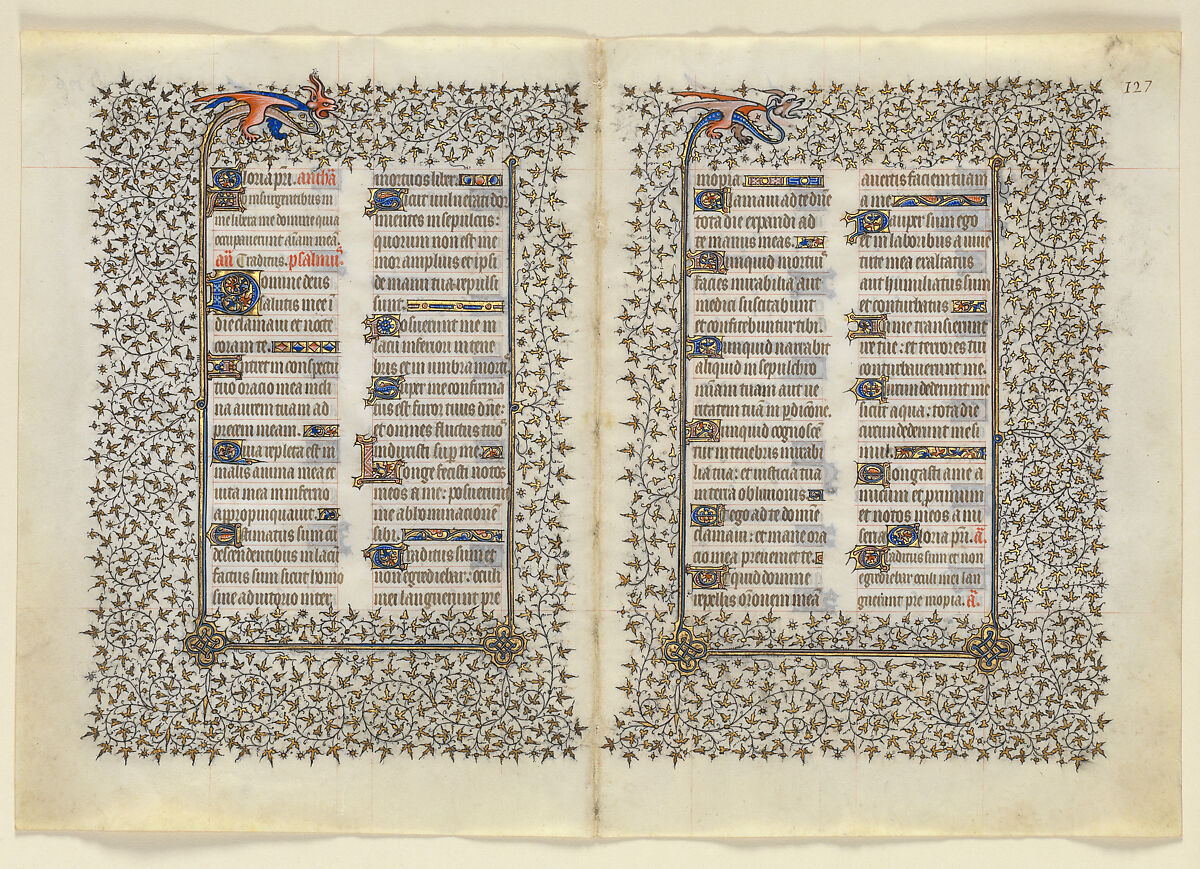 Gloria pri. antha
Insurgentibus in
me libera me domine quia
occupauerunt aīam meā
añ Traditus. psalmus.
Domine deus
salutis mee ī
die clamaui et nocte
coram te.
Intret in conspectu
tuo oracio mea incli
na aurem tuam ad
precem meam.
Quia repleta est in
malis anima mea et
uita mea in inferno
appropinquauit.
Estimatus sum cū
descendentibus in lacū
factus sum sicut homo
sine adiutorio inter
mortuos liber.
Sicut uulnerati dor
mientes in sepulcris:
quorum non est me
mor amplius et ipsi
de manu tua repulsi
sunt.
Posuerunt me in
lacu inferiori in tene
bris et in umbra mortis
Super me confirma
tus est furor tuus dñe:
et omnes fluctus tuos
induxisti sup me
Longe fecisti notos
meos a me: posuerunt
me abhominacionē
sibi.
Traditus sum et
non egrediebar: oculi
mei languerunt pre
inopia
Clamaui ad te dñe
tota die expandi ad
te manus meas.
Nunquid mortuis
facies mirabilia aut
medici suscitabunt
et confitebuntur tibi.
Nunquid narrabit
aliquis in sepulchro
miam tuam aut ue
ritatem tuā in pdicōne.
Nunquid cognoscē
tur in tenebris mirabi
lia tua: et iusticia tua
in terra obliuionis
Et ego ad te domine
clamaui: et mane ora
cio mea preueniet te.
Ut quid domine
repellis orōnem meā
auertis faciem tuam
a me
Pauper sum ego
et in laboribus a iuue
tute mea exaltatus
aut humiliatus sum
et conturbatus
In me transierunt
ire tue: et terrores tui
conturbauerunt me.
Circumdederunt me
sicut aqua: tota die
circumdederunt me si
mul.
Elongasti a me a
micum et primum
et notos meos a mi
seria Gloria pri. a.
Traditus sum et non
egrediebar oculi mei lan
guerunt pre inopia. a.
127